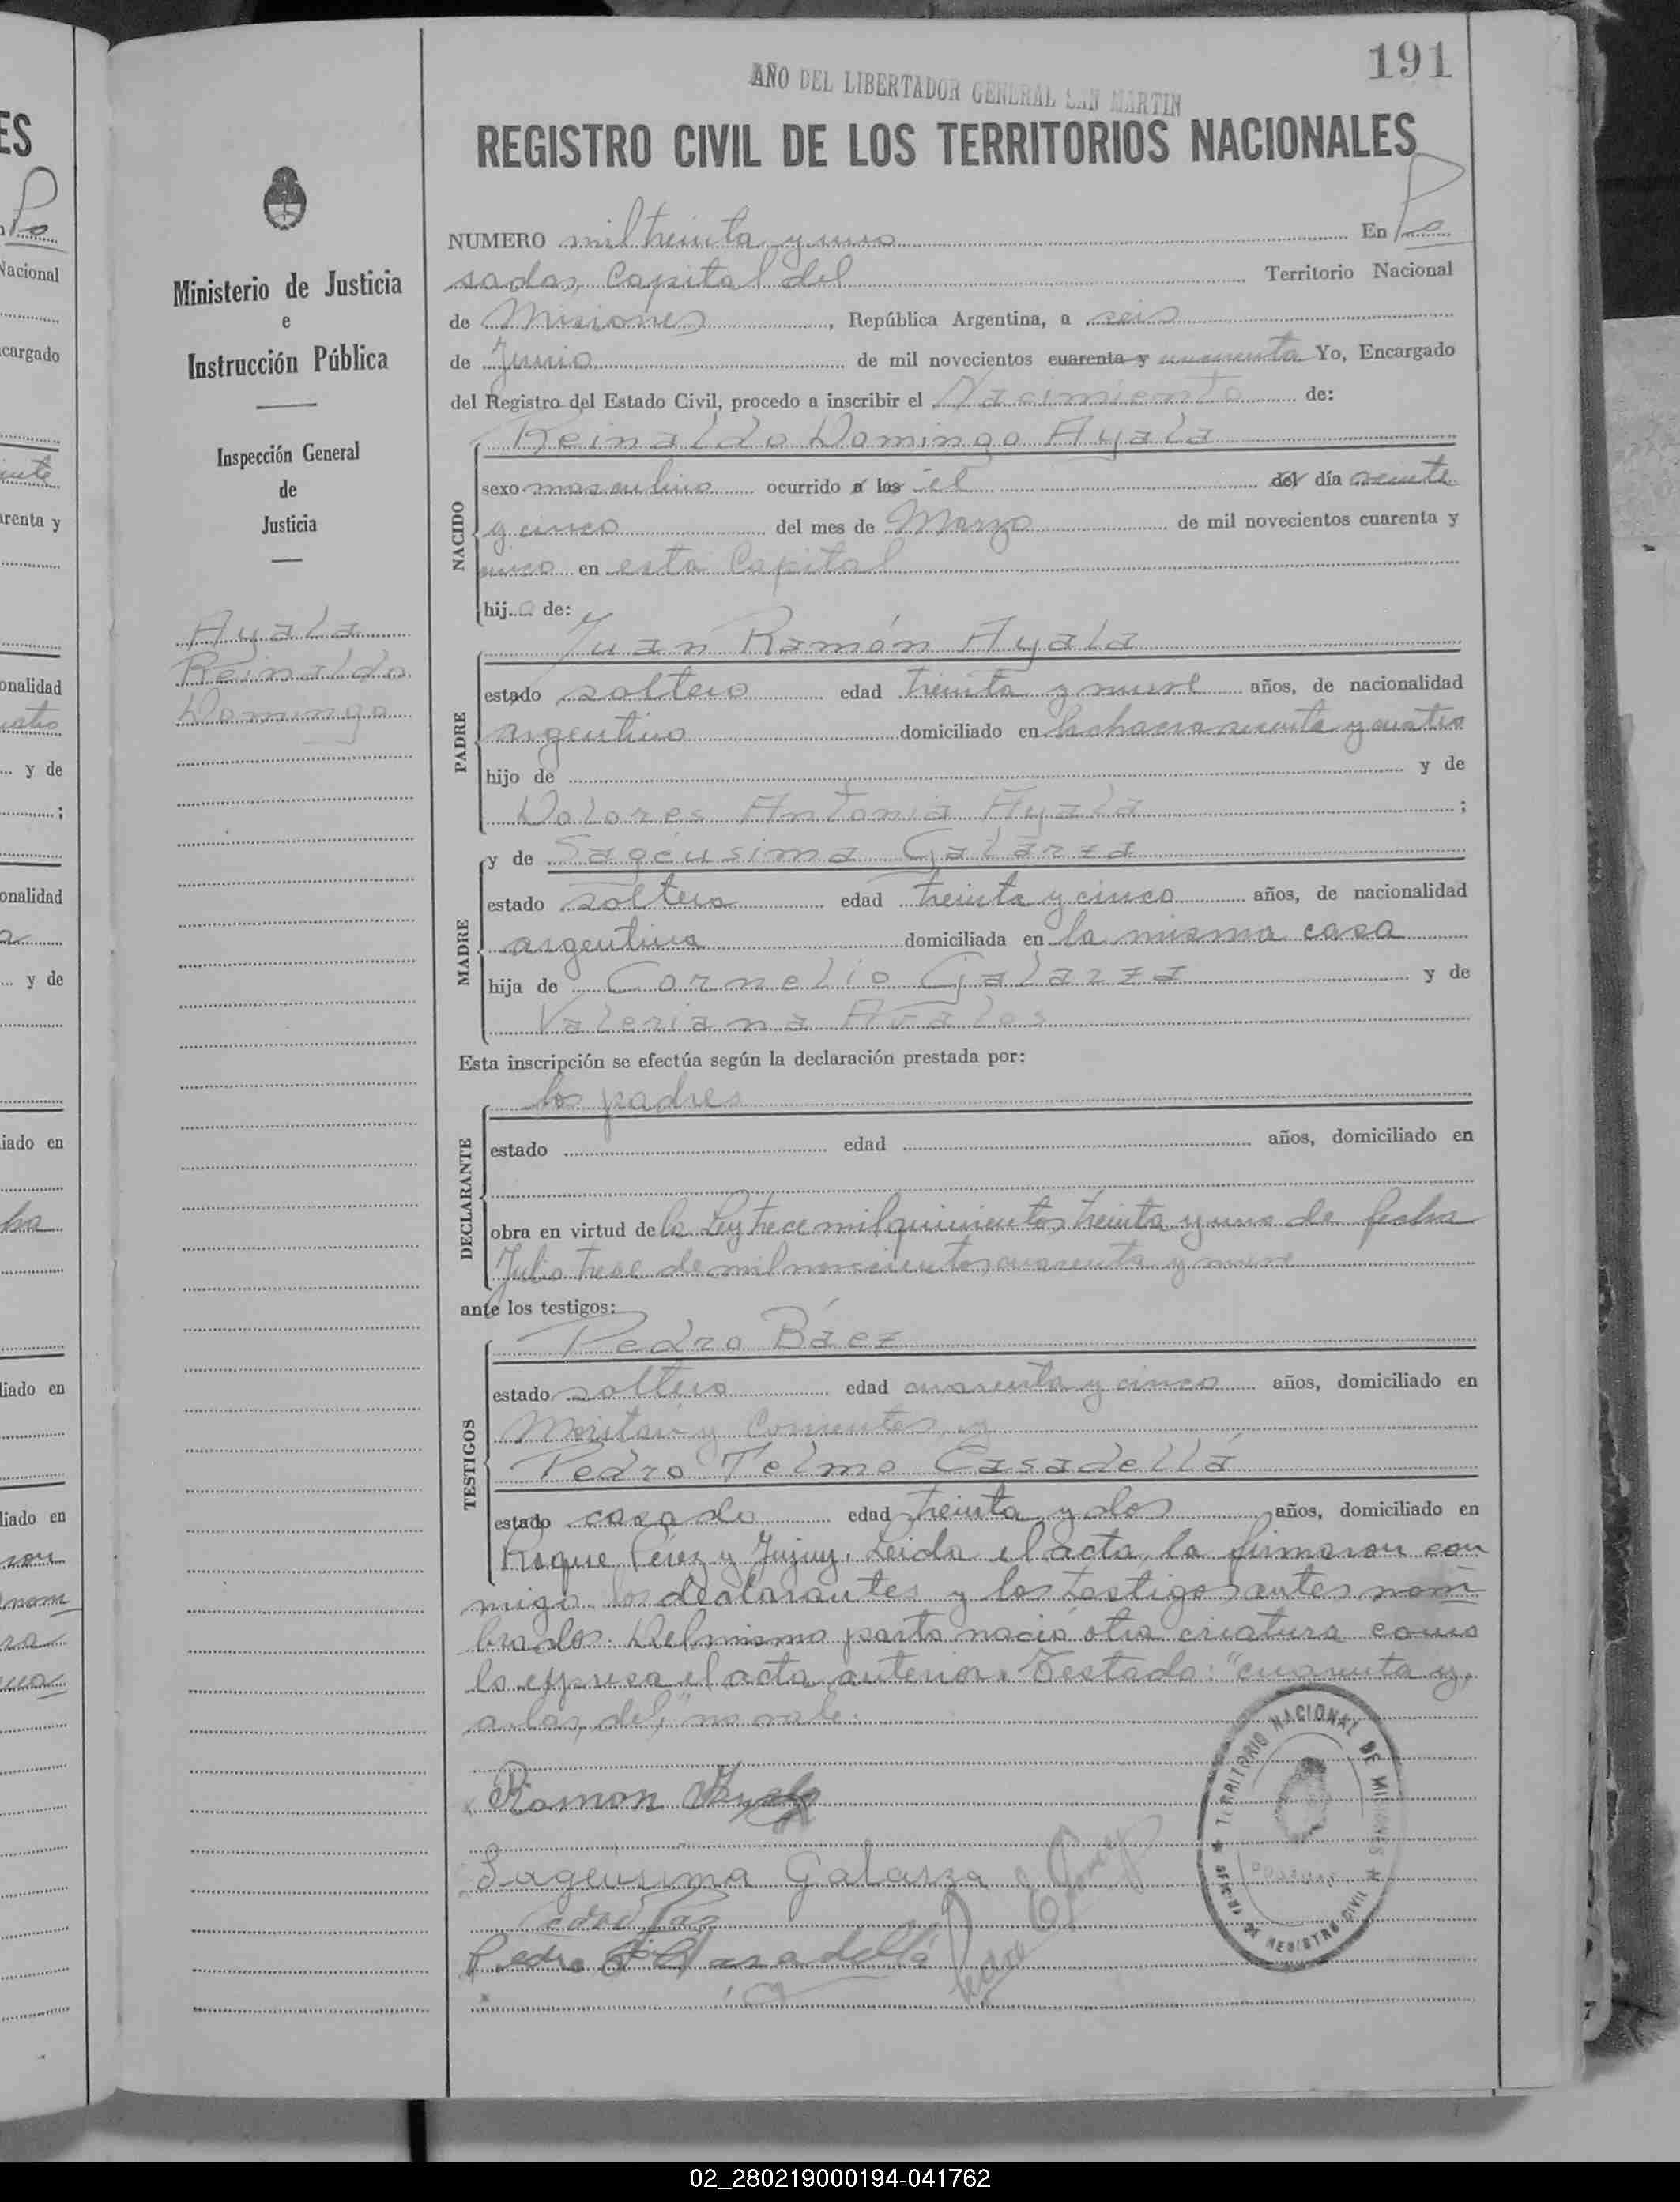 191
AÑO DEL LIBERTADOR GENERAL SAN MARTIN
REGISTRO CIVIL DE LOS TERRITORIOS NACIONALES
Ministerio de Justicia
e
Instrucción Pública
Inspección General
de
Justicia
Ayala
Reinaldo
Domingo
NUMERO mil treinta y uno En Po
sadas, Capital del Territorio Nacional
de Misiones, República Argentina, a seis
de Junio de mil novecientos cuarenta y cincuenta Yo, Encargado
del Registro del Estado Civil, procedo a inscribir el Nacimiento de:
Reinaldo Domingo Ayala
NACIDO
sexo masculino ocurrido a las el del día veinte
y cinco del mes de Marzo de mil novecientos cuarenta y
en esta Capital
hijo de:
Juan Ramón Ayala
PADRE
estado soltero edad treinta y nueve años, de nacionalidad
argentino domiciliado en la chacra y cuatro
hijo de y de
Dolores Antonia Ayala;
y de Sageusima Galarza
MADRE
estado soltera edad treinta y cinco años, de nacionalidad
argentina domiciliada en la misma casa
hija de Cornelio Galarza y de
Valeriana Avalos
Esta inscripción se efectúa según la declaración prestada por:
los padres
DECLARANTE
estado edad años, domiciliado en
obra en virtud de la Ley trece mil quinientos treinta y uno de fecha
Julio trece de mil novecientos cuarenta y nueve
ante los testigos:
Pedro Báez
TESTIGOS
estado soltero edad cuarenta y cinco años, domiciliado en
y Corrientes, y
Pedro Telmo Casadellá
estado casado edad treinta y dos años, domiciliado en
Roque Pérez y Jujuy. Leida el acta, la firmaron con
migo los declarantes y los testigos antes nom
brados. Del mismo parto nació otra criatura como
lo expresa el acta anterior. Testado: "cuarenta y,
a las, del," no vale.
Ramon Ayala
Sageusima Galarza
Pedro Casadellá
TERRITORIO NACIONAL DE MISIONES
POSADAS
OFICINA DE REGISTRO CIVIL
ES
Po
Nacional
cargado
arenta y
onalidad
y de
;
onalidad
y de
iado en
liado en
liado en
nom
02_280219000194-041762